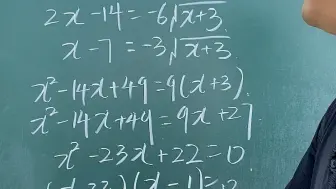 2x-14=-6√x+3
x-7=-3√x+3
x²-14x+49=9(x+3).
x²-14x+49=9x+27.
x²-23x+22=0
(x-22)(x-1)=0